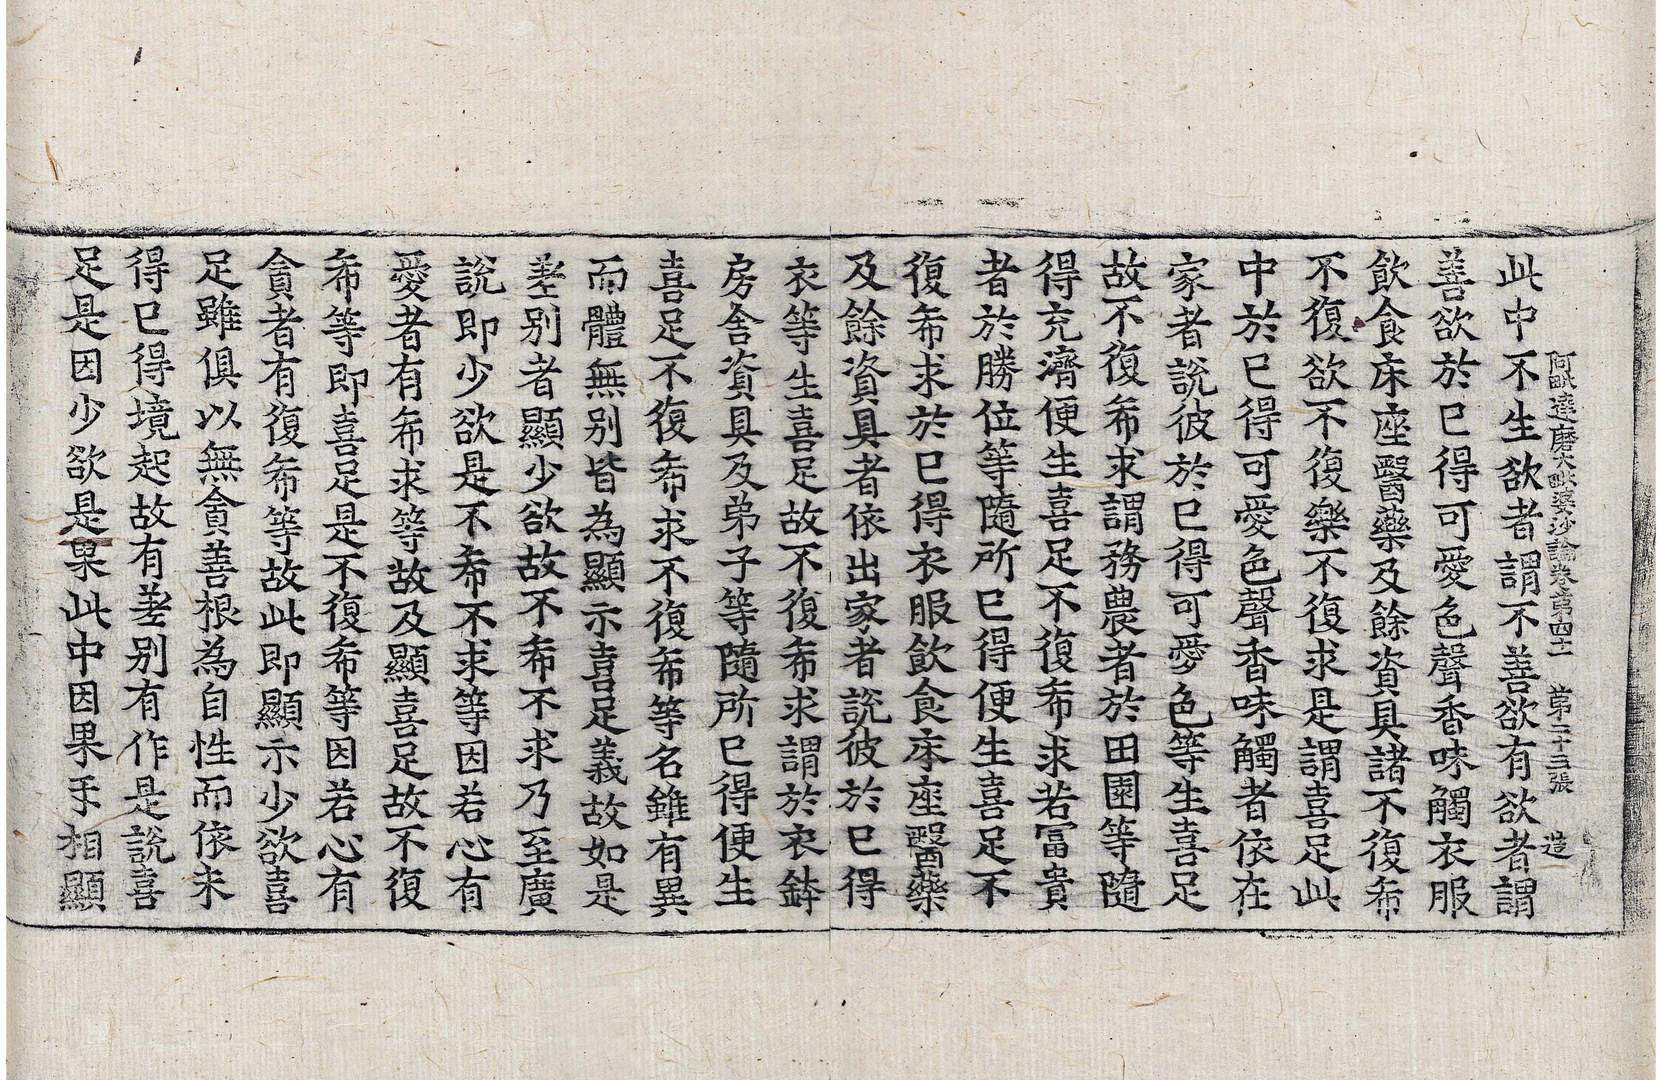 阿毗達磨大毗婆沙論卷第四十一 第二十三張 造
此中不生欲者謂不善欲有欲者謂
善欲於已得可愛色聲香味觸衣服
飲食床座醫藥及餘資具諸不復希
不復欲不復樂不復求是謂喜足此
中於已得可愛色聲香味觸者依在
家者說彼於已得可愛色等生喜足
故不復希求謂務農者於田園等隨
得充濟便生喜足不復希求若富貴
者於勝位等隨所已得便生喜足不
復希求於已得衣服飲食床座醫藥
及餘資具者依出家者說彼於已得
衣等生喜足故不復希求謂於衣鉢
房舍資具及弟子等隨所已得便生
喜足不復希求不復希等名雖有異
而體無別皆為顯示喜足義故如是
差別者顯少欲故不希不求乃至廣
說即少欲是不希不求等因若心有
愛者有希求等故及顯喜足故不復
希等即喜足是不復希等因若心有
貪者有復希等故此即顯示少欲喜
足雖俱以無貪善根為自性而依未
得已得境起故有差別有作是說喜
足是因少欲是果此中因果手相顯